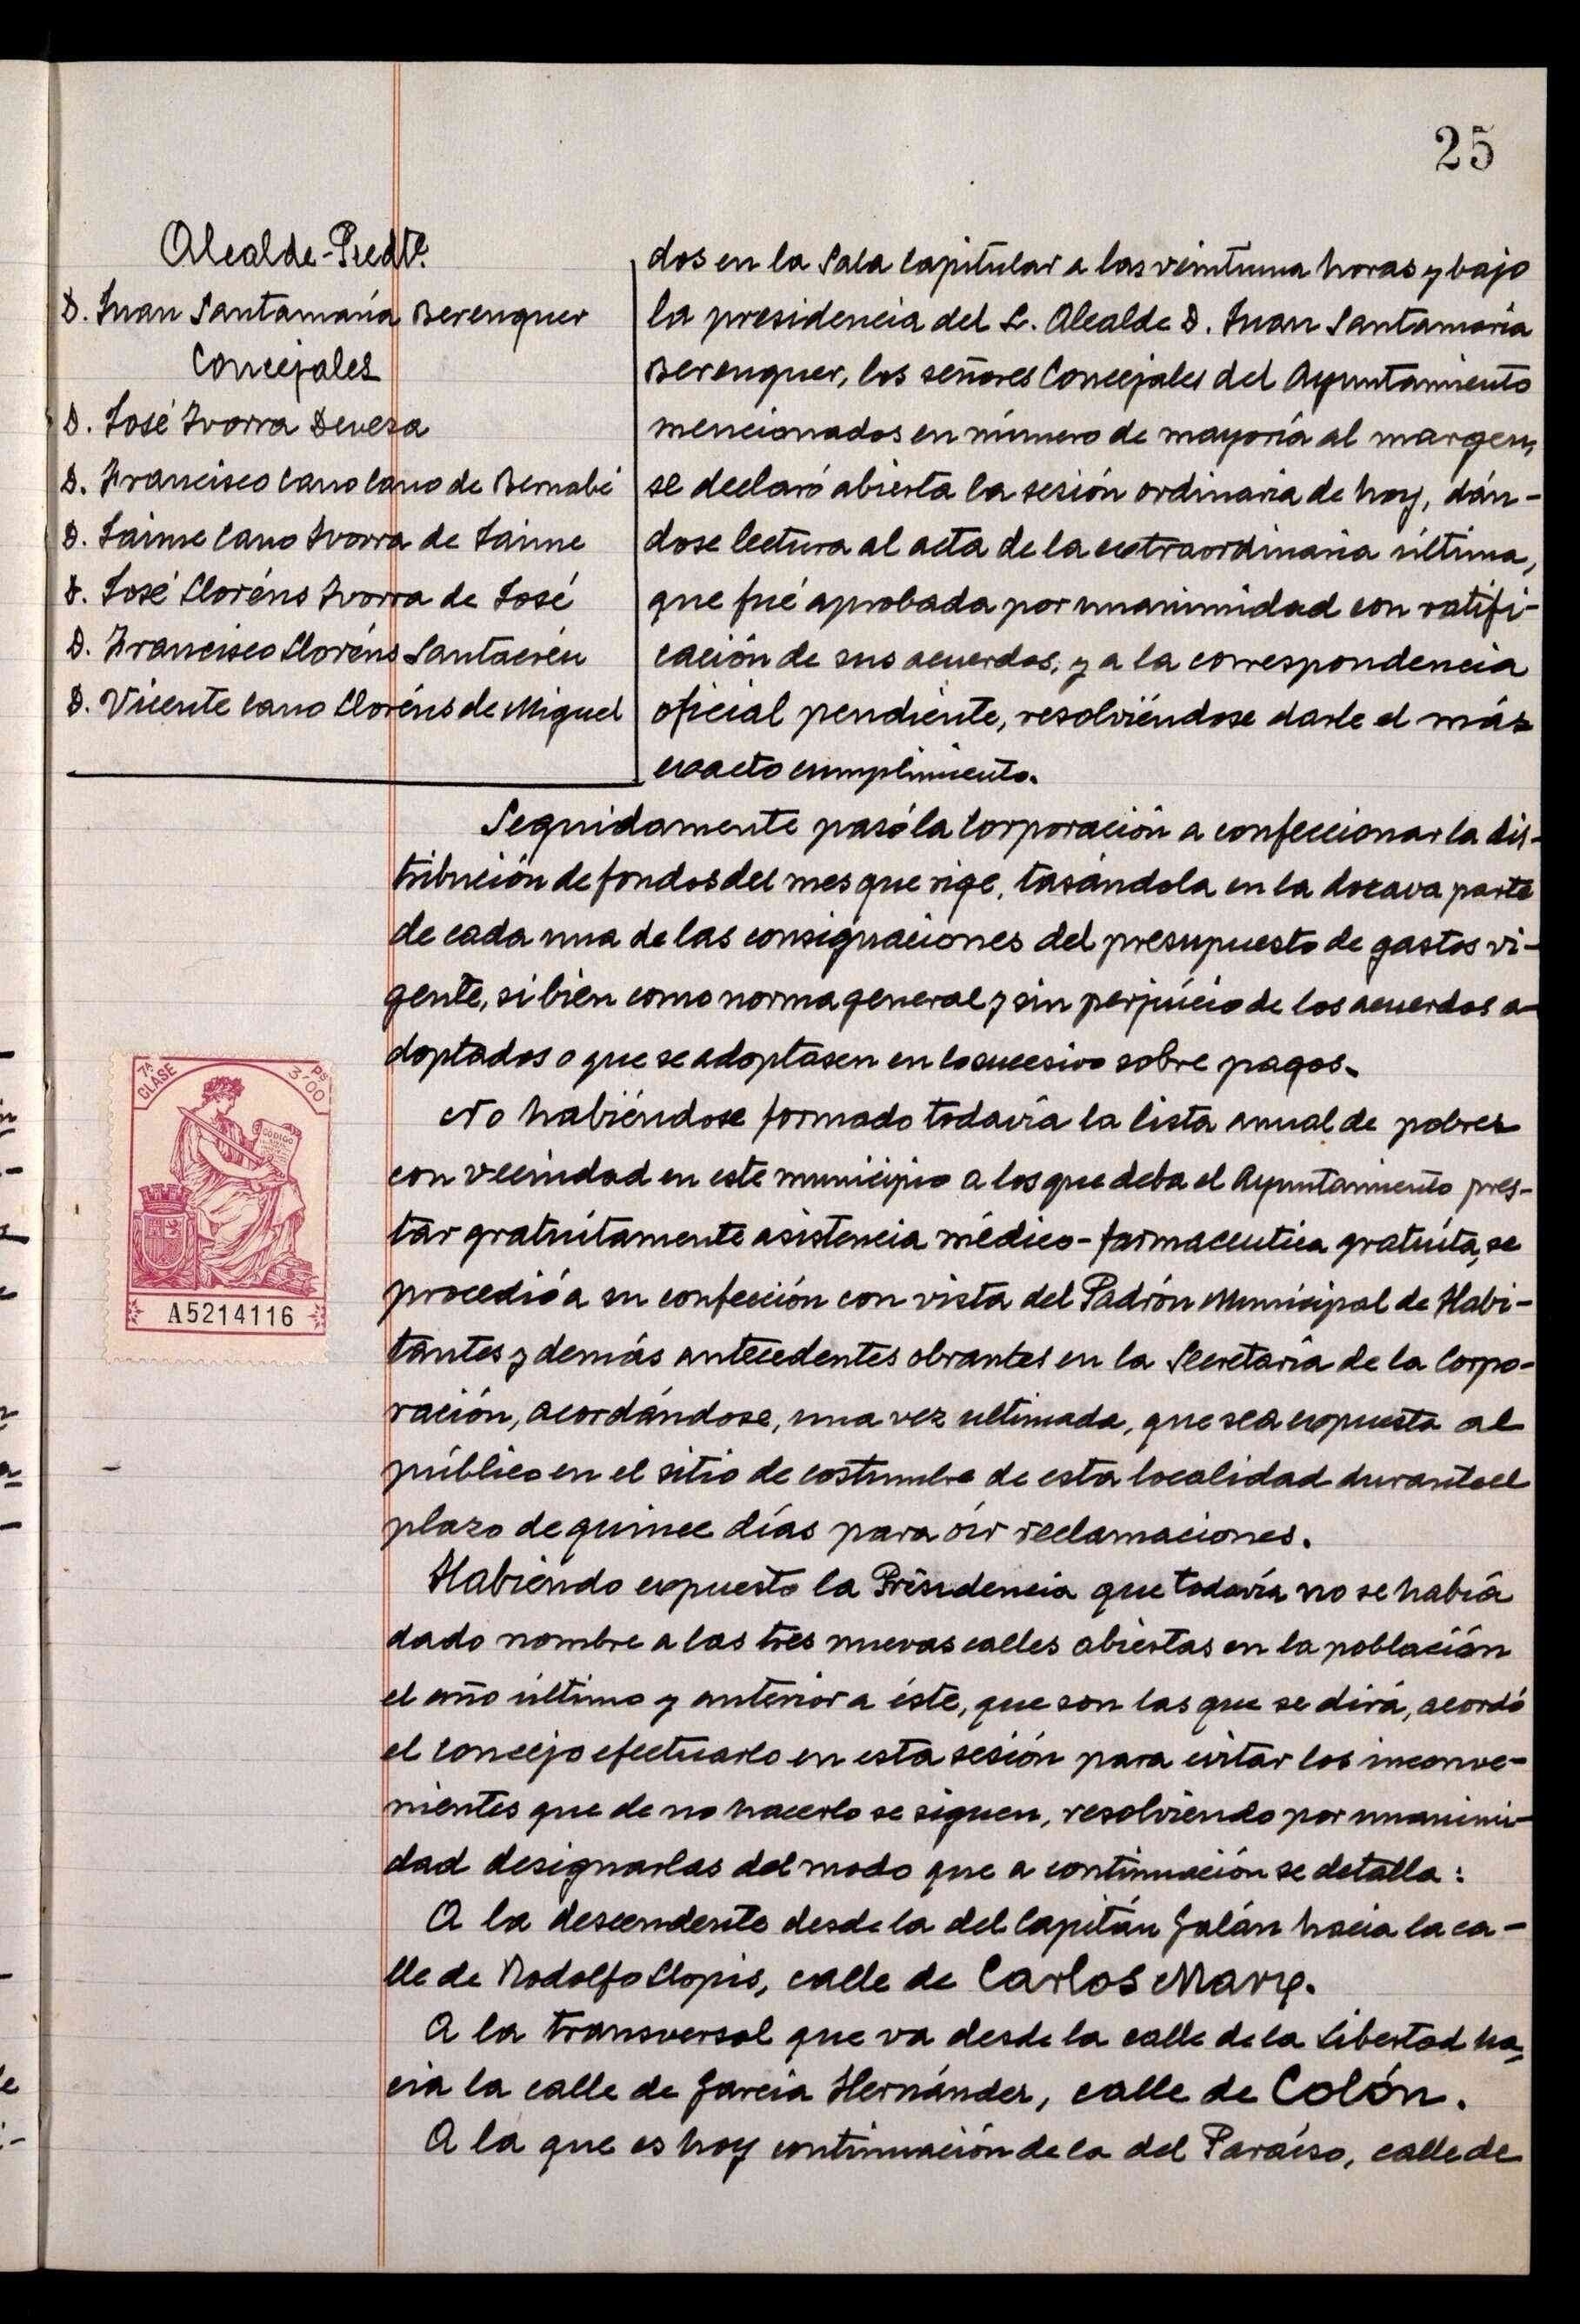 25
Alcalde-Predte.
D. Juan Santamaría Berenguer
Concejales
D. José Ivorra Devesa
D. Francisco Cano Cano de Bernabé
D. Jaime Cano Ivorra de Jaime
D. José Lloréns Ivorra de José
D. Francisco Lloréns Santacréu
D. Vicente Cano Lloréns de Miguel
dos en la Sala Capitular a las veintiuna horas y bajo
la presidencia del S. Alcalde D. Juan Santamaria
Berenguer, los señores Concejales del Ayuntamiento
mencionados en número de mayoría al margen,
se declaró abierta la sesión ordinaria de hoy, dán-
dose lectura al acta de la extraordinaria última,
que fué aprobada por unanimidad con ratifi-
cación de sus acuerdos, y a la correspondencia
oficial pendiente, resolviéndose darle el más
exacto cumplimiento.
Seguidamente pasó la Corporación a confeccionar la dis-
tribución de fondos del mes que rige, tasándola en la dozava parte
de cada una de las consignaciones del presupuesto de gastos vi-
gente, si bien como norma general y sin perjuício de los acuerdos a-
doptados o que se adoptasen en lo sucesivo sobre pagos.
No habiéndose formado todavía la lista anual de pobres
con vecindad en este municipio a los que deba el Ayuntamiento pres-
tar gratuítamente asistencia médico-farmaceutica gratuíta, se
procedió a su confección con vista del Padrón Municipal de Habi-
tantes y demás antecedentes obrantes en la Secretaría de la Corpo-
ración, acordándose, una vez ultimada, que sea expuesta al
público en el sitio de costumbre de esta localidad durante el
plazo de quince días para oír reclamaciones.
Habiendo expuesto la Presidencia que todavía no se había
dado nombre a las tres nuevas calles abiertas en la población
el año último y anterior a éste, que son las que se dirá, acordó
el Concejo efectuarlo en esta sesión para evitar los inconve-
nientes que de no hacerlo se siguen, resolviendo por unanimi-
dad designarlas del modo que a continuación se detalla:
A la descendente desde la del Capitán Galán hacia la ca-
lle de Rodolfo Llopis, calle de Carlos Marx.
A la transversal que va desde la calle de la Libertad ha-
cia la calle de García Hernández, calle de Colón.
A la que es hoy continuación de la del Paraíso, calle de
7ª CLASE
3'00 Ps
CÓDIGO
A5214116